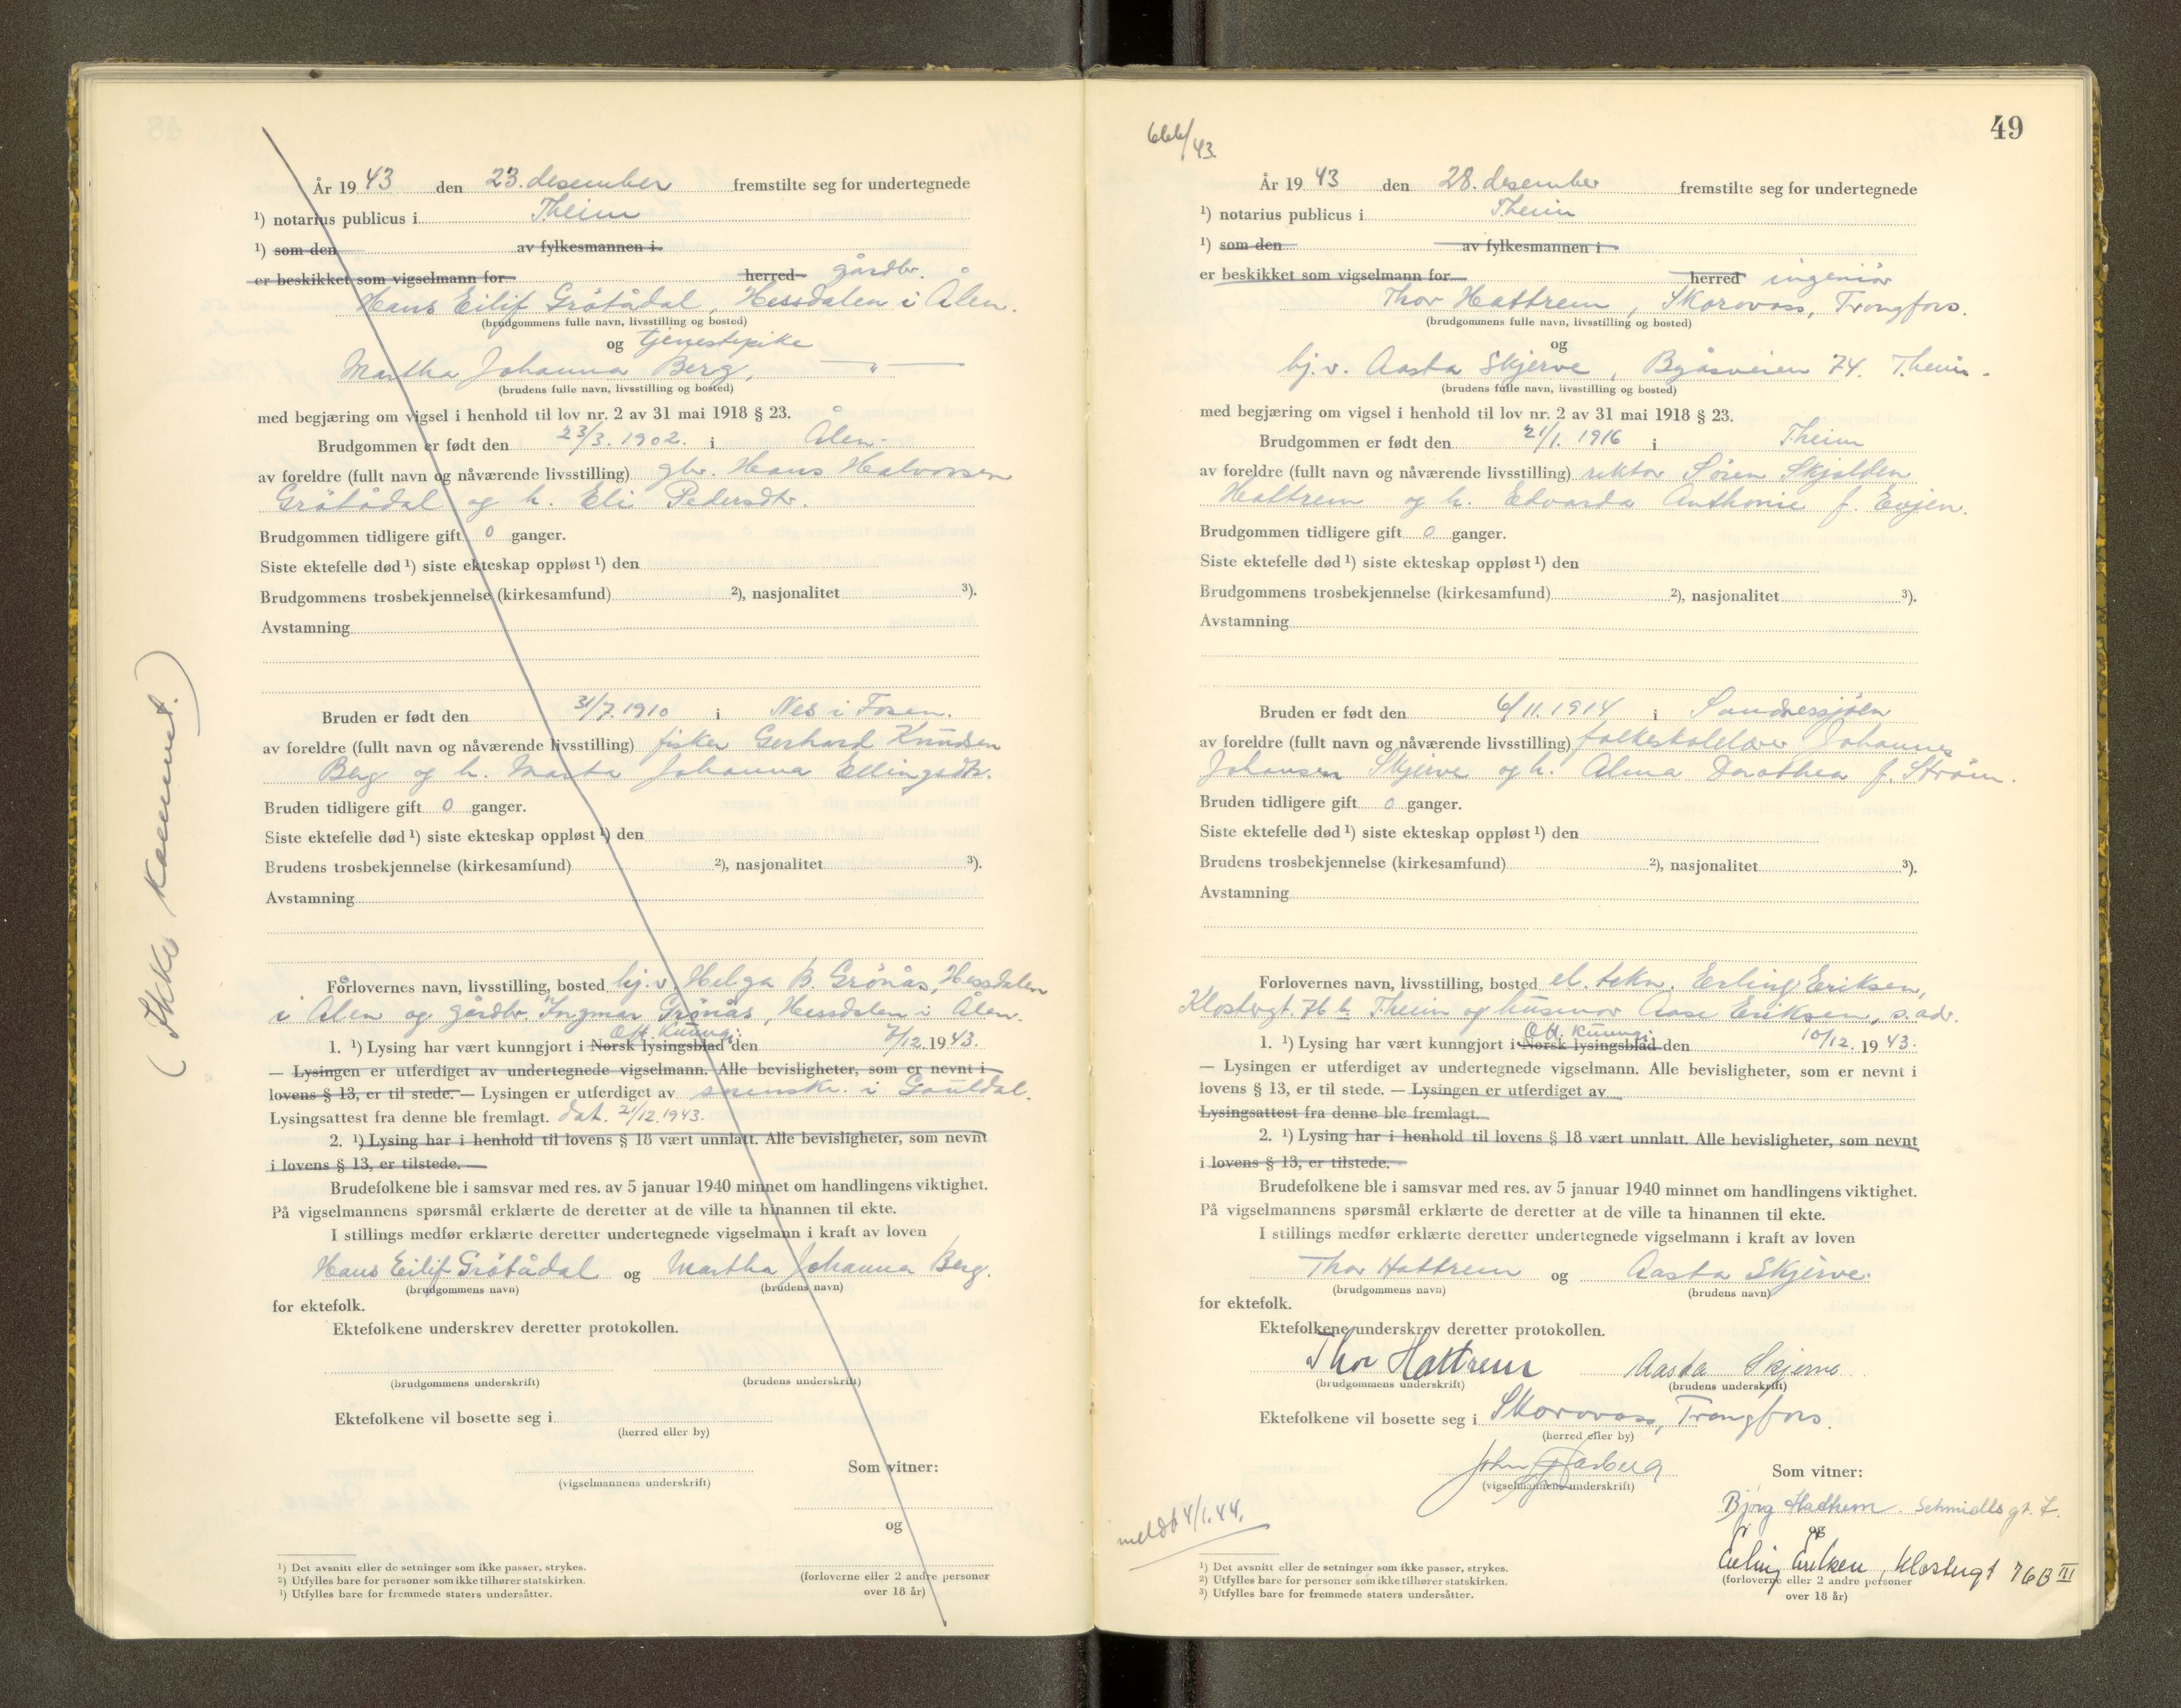 (Ikke kommet.)
År 19 43 den 23. desember fremstilte seg for undertegnede
¹) notarius publicus i Theim
¹) som den av fylkesmannen i
er beskikket som vigselmann for herred gårdbr.
Hans Eilif Grötådal, Hessdalen i Ålen.
(brudgommens fulle navn, livsstilling og bosted)
og tjenestepike
Martha Johanna Berg, — " —
(brudens fulle navn, livsstilling og bosted)
med begjæring om vigsel i henhold til lov nr. 2 av 31 mai 1918 § 23.
Brudgommen er født den 23/3. 1902. i Ålen.
av foreldre (fullt navn og nåværende livsstilling) gbr. Hans Halvorsen
Grötådal og h. Eli Pedersdtr.
Brudgommen tidligere gift 0 ganger.
Siste ektefelle død ¹) siste ekteskap oppløst ¹) den
Brudgommens trosbekjennelse (kirkesamfund) ²), nasjonalitet ³).
Avstamning
Bruden er født den 31/7. 1910 i Nes i Fosen.
av foreldre (fullt navn og nåværende livsstilling) fisker Gerhard Knudsen
Berg og h. Marta Johanna Ellingsdtr.
Bruden tidligere gift 0 ganger.
Siste ektefelle død ¹) siste ekteskap oppløst ¹) den
Brudens trosbekjennelse (kirkesamfund) ²), nasjonalitet ³).
Avstamning
Forlovernes navn, livsstilling, bosted hj.v. Helga B. Grönås, Hessdalen
i Ålen og gårdbr. Ingmar Grönås, Hessdalen i Ålen.
Off. Kunngj.
1. ¹) Lysing har vært kunngjort i Norsk lysingsblad den 7/12. 19 43.
— Lysingen er utferdiget av undertegnede vigselmann. Alle bevisligheter, som er nevnt i
lovens § 13, er til stede. — Lysingen er utferdiget av sorenskr. i Gauldal.
Lysingsattest fra denne ble fremlagt. dat. 21/12. 1943.
2. ¹) Lysing har i henhold til lovens § 18 vært unnlatt. Alle bevisligheter, som nevnt
i lovens § 13, er tilstede. —
Brudefolkene ble i samsvar med res. av 5 januar 1940 minnet om handlingens viktighet.
På vigselmannens spørsmål erklærte de deretter at de ville ta hinannen til ekte.
I stillings medfør erklærte deretter undertegnede vigselmann i kraft av loven
Hans Eilif Grötådal og Martha Johanna Berg.
(brudgommens navn) (brudens navn)
for ektefolk.
Ektefolkene underskrev deretter protokollen.
(brudgommens underskrift) (brudens underskrift)
Ektefolkene vil bosette seg i
(herred eller by)
Som vitner:
(vigselmannens underskrift)
og
(forloverne eller 2 andre personer
over 18 år)
¹) Det avsnitt eller de setninger som ikke passer, strykes.
²) Utfylles bare for personer som ikke tilhører statskirken.
³) Utfylles bare for fremmede staters undersåtter.
49
666/43
År 19 43 den 28. desember fremstilte seg for undertegnede
¹) notarius publicus i Theim
¹) som den av fylkesmannen i
er beskikket som vigselmann for herred ingeniör
Thor Hattrem, Skorovass, Trongfors.
(brudgommens fulle navn, livsstilling og bosted)
og
hj.v. Aasta Skjerve, Byåsveien 74. Theim.
(brudens fulle navn, livsstilling og bosted)
med begjæring om vigsel i henhold til lov nr. 2 av 31 mai 1918 § 23.
Brudgommen er født den 21/1. 1916 i Theim
av foreldre (fullt navn og nåværende livsstilling) rektor Sören Skjolden
Hattrem og h. Edvarda Anthonie f. Evjen.
Brudgommen tidligere gift 0 ganger.
Siste ektefelle død ¹) siste ekteskap oppløst ¹) den
Brudgommens trosbekjennelse (kirkesamfund) ²), nasjonalitet ³).
Avstamning
Bruden er født den 6/11. 1914 i Sandnessjöen
av foreldre (fullt navn og nåværende livsstilling) folkeskolelærer Johannes
Johansen Skjerve og h. Alma Dorothea f. Ström.
Bruden tidligere gift 0 ganger.
Siste ektefelle død ¹) siste ekteskap oppløst ¹) den
Brudens trosbekjennelse (kirkesamfund) ²), nasjonalitet ³).
Avstamning
Forlovernes navn, livsstilling, bosted el. tekn. Erling Eriksen,
Klostergt. 76 b Theim og husmor Aase Eriksen, s. adr.
Off. Kunngj.
1. ¹) Lysing har vært kunngjort i Norsk lysingsblad den 10/12. 19 43.
— Lysingen er utferdiget av undertegnede vigselmann. Alle bevisligheter, som er nevnt i
lovens § 13, er til stede. — Lysingen er utferdiget av
Lysingsattest fra denne ble fremlagt.
2. ¹) Lysing har i henhold til lovens § 18 vært unnlatt. Alle bevisligheter, som nevnt
i lovens § 13, er tilstede. —
Brudefolkene ble i samsvar med res. av 5 januar 1940 minnet om handlingens viktighet.
På vigselmannens spørsmål erklærte de deretter at de ville ta hinannen til ekte.
I stillings medfør erklærte deretter undertegnede vigselmann i kraft av loven
Thor Hattrem og Aasta Skjerve.
(brudgommens navn) (brudens navn)
for ektefolk.
Ektefolkene underskrev deretter protokollen.
Thor Hattrem Aasta Skjerve
(brudgommens underskrift) (brudens underskrift)
Ektefolkene vil bosette seg i Skorovass, Trongfors.
(herred eller by)
John
(vigselmannens underskrift)
Som vitner:
meldt 4/1.44.
Bjørg Hattrem. Schmidts gt. 7.
og
Erling Eriksen, Klostergt 76B III
(forloverne eller 2 andre personer
over 18 år)
¹) Det avsnitt eller de setninger som ikke passer, strykes.
²) Utfylles bare for personer som ikke tilhører statskirken.
³) Utfylles bare for fremmede staters undersåtter.